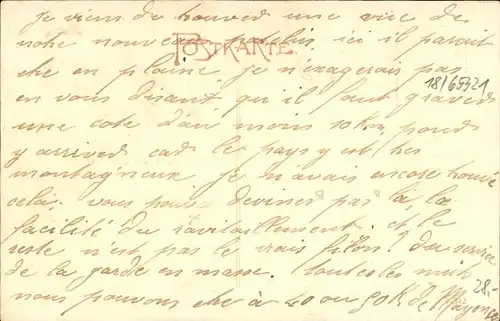 Je viens de trouver une vue de
notre nouveau patelin. ici il parait
être en plaine je n'exagerais pas
en vous disant qu'il faut graver
une cote d'au moins 10 Km, pour
y arriver car le pays y est très
montagneux je n'avais encore trouvé
cela. vous pouvez deviner par là, la
facilité du ravitaillement. et le
reste n'est pas le vrais filon. du service
de la garde en masse. toutes les nuits
nous pouvons être à 40 ou 50 K de Mayence
POSTKARTE
18/65321
28.-